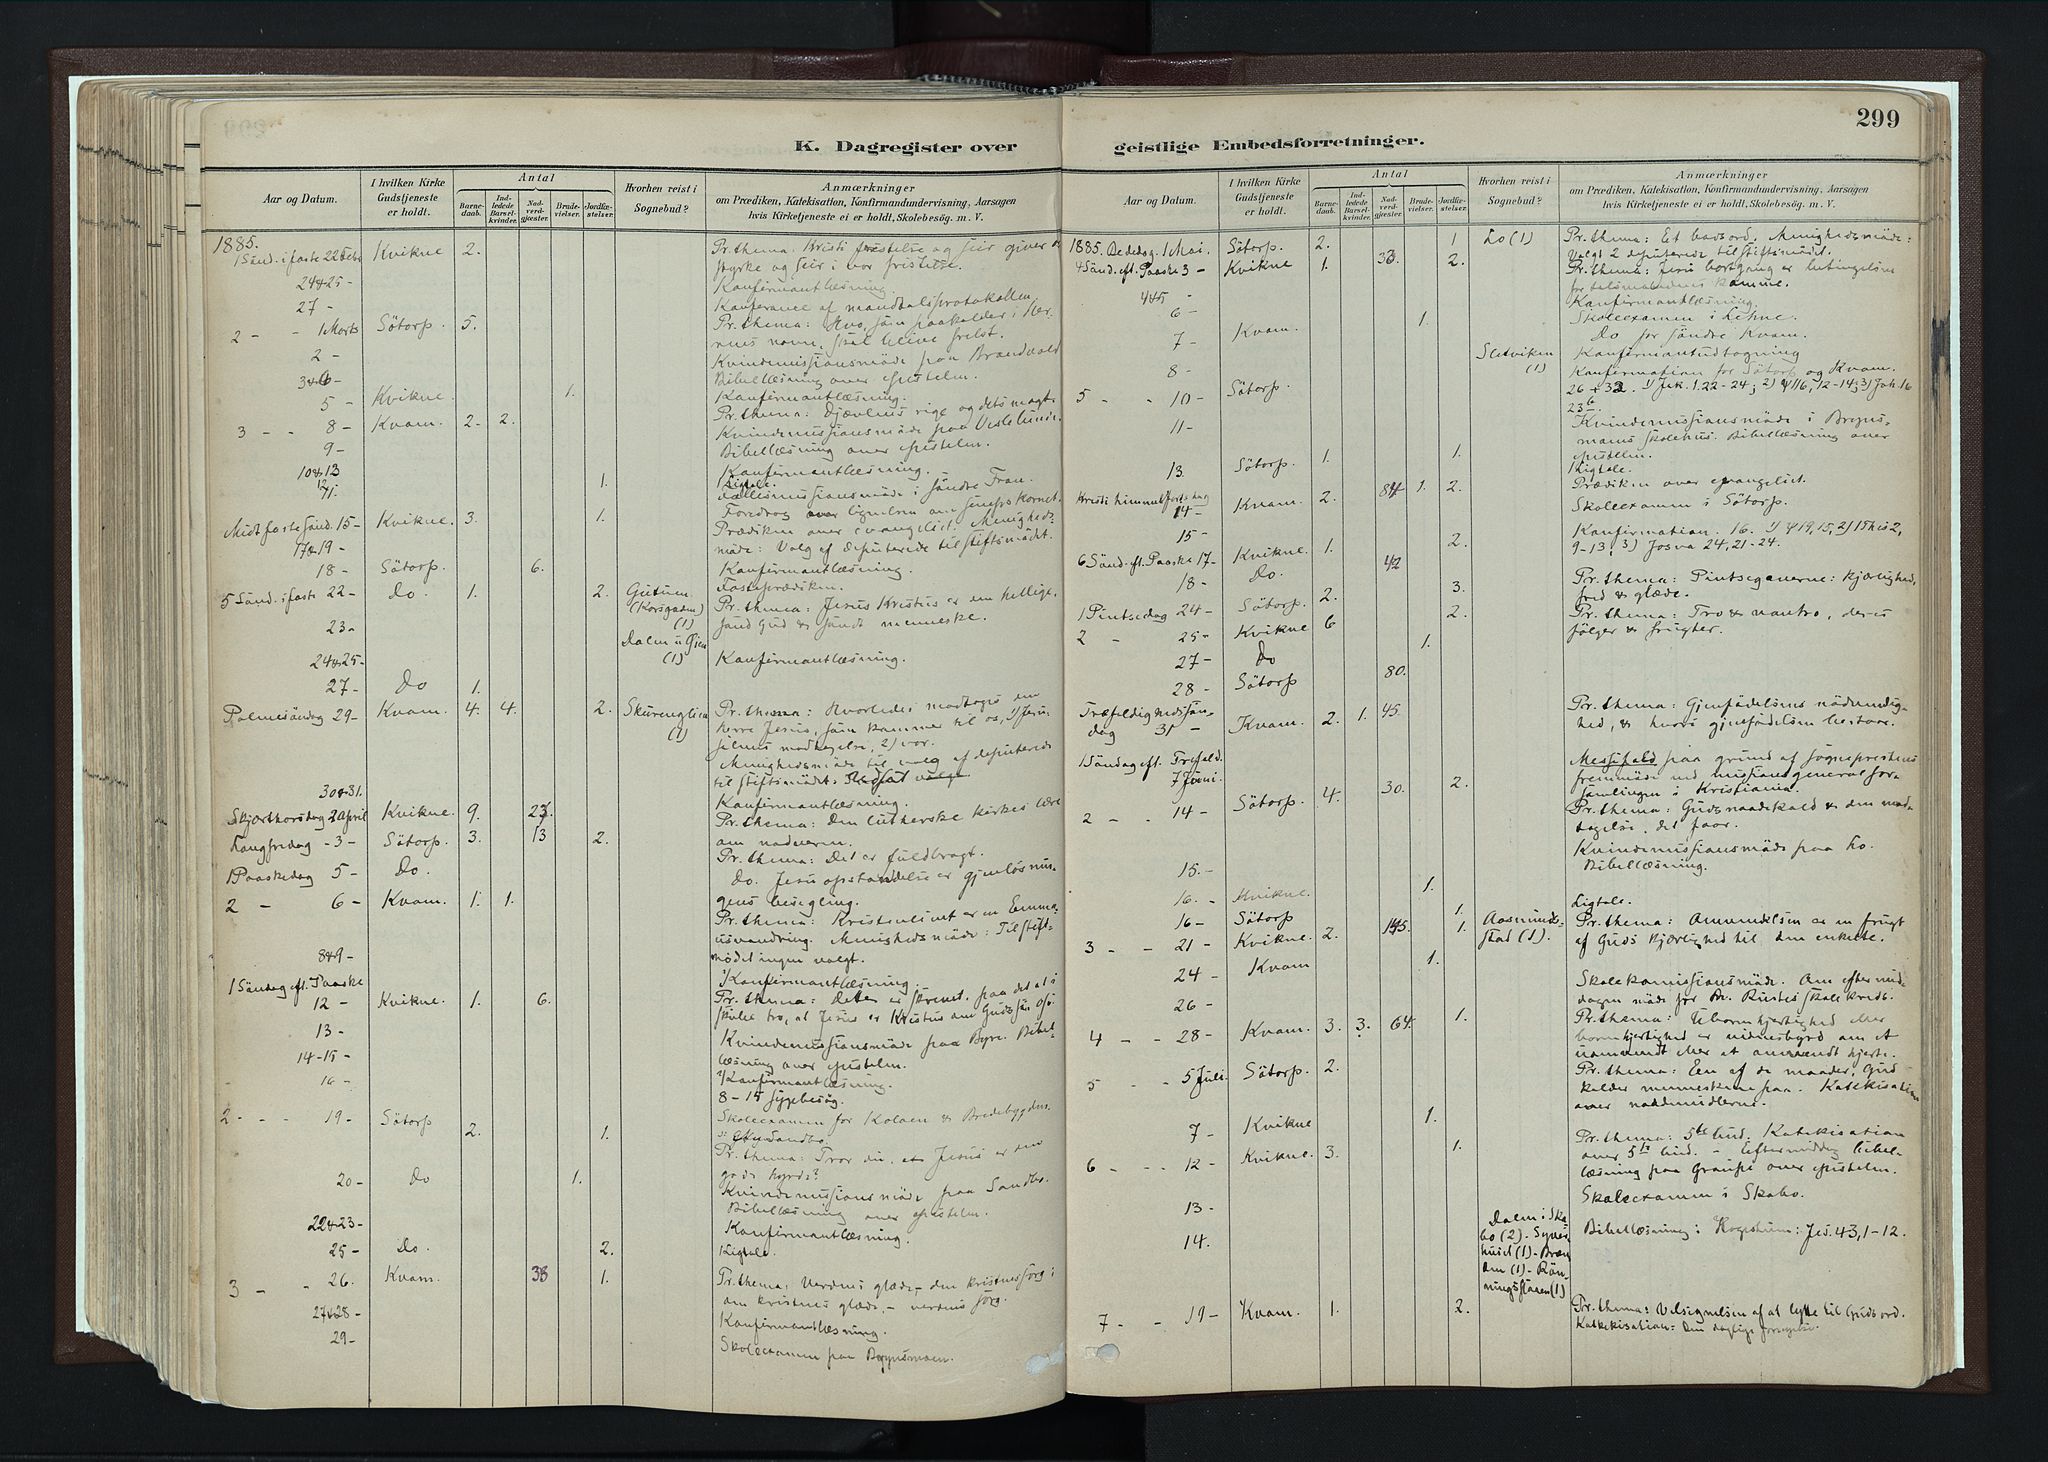 299
K. Dagregister over
geistlige Embedsforretninger.
Aar og Datum.
I hvilken Kirke
Gudstjeneste
er holdt.
Antal
Barne-
daab.
Ind-
ledede
Barsel-
kvinder.
Nad-
verd-
gjæster
Brude-
vielser.
Jordfæ-
stelser.
Hvorhen reist i
Sognebud?
Anmærkninger
om Prædiken, Katekisation, Konfirmandundervisning, Aarsagen
hvis Kirketjeneste ei er holdt, Skolebesøg. m. V.
1885.
1 Sönd. i faste 22 Febr Kvikne 2. Pr. thema: Kristi fristelse og seir giver os
styrke og seir i vor fristelse.
24 & 25 - Konfirmantlæsning.
27 - Konferance af mandtalsprotokollen.
2 - - 1 Marts Sötorp. 5. Pr. thema: Hvo, som paakalder Her-
rens navn, skal blive frelst.
2 - Kvindemissionsmöde paa Brandvold
Bibellæsning over epistelen.
Konfirmantlæsning.
5 - Kvikne. 1.
3 - - 8 - Kvam. 2. 2. Pr. thema: Djævlens rige og dets magt.
9 - Kvindemissionsmöde paa
Bibellæsning over epistelen.
10 & 13 Konfirmantlæsning.
12/ 1. Ligtale.
Fællesmissionsmöde i söndre Fron.
Foredrag over lignelsen om senepskornet.
Midtfaste Sönd. 15 - Kvikne. 3. 1. Prædiken over evangeliet. Menigheds-
möde: Valg af deputerede til stiftsmödet.
17 & 19 - Konfirmantlæsning.
18 - Sötorp. 6. Fasteprædiken.
5 Sönd. i faste 22 - Do. 1. 2. (Korsgaden)
(1)
Pr. thema: Jesus Kristus er den hellige,
sand Gud & sandt menneske.
23 - (1)
24 & 25 - Konfirmantlæsning.
27 - Do 1.
Palmesöndag 29 - Kvam. 4. 4. 2. (1) Pr. thema: Hvorledes modtoges den
Herre Jesus, som kommer til os, 1) Jeru-
salems modtagelse, 2) vor.
Menighedsmöde til valg af deputerede
til stiftsmödet.
30 & 31. Konfirmantlæsning.
Skjærthorsdag 2 April Kvikne. 9. 23. Pr. thema: Den lutherske kirkes lære
om nadveren.
Langfredag - 3 - Sötorp. 3. 13 2. Pr. thema: Det er fuldbragt.
1 Paaskedag 5 - Do. Do. Jesu opstandelse er gjenlösnin-
gens besegling.
2 - 6 - Kvam. 1. 1. Pr. thema: Kristenlivet er en Emma-
usvandring. Menighedsmöde: Til stift-
mödet ingen valgt.
8 & 9 - 1) Konfirmantlæsning.
1 Söndag eft. Paaske
12 - Kvikne. 1. 6. Pr. thema: Dette er skrevet, paa det at I
skulle tro, at Jesus er Kristus
13 - Kvindemissionsmöde paa Byre. Bibel-
læsning over epistelen.
14 - 15 - 2) Konfirmantlæsning.
16 - 8 - 15 sygebesög.
Skoleexamen for Kolaen & Bredebygden.
2 - - 19 - Sötorp 2. 1. Pr. thema: Tror du, at Jesus er den
gode hyrde?
20 - Do 1. Kvindemissionsmöde paa Sandbo.
Bibellæsning over epistelen.
22 & 23 - Konfirmantlæsning.
25 - Do. 2. Ligtale.
3 - - 26. Kvam. 38 1. Pr. thema: Verdens glæde - den kristnes sorg;
om kristnes glæde, - verdens sorg.
27 & 28 - Konfirmantlæsning.
29 - Skoleexamen paa
Aar og Datum.
I hvilken Kirke
Gudstjeneste
er holdt.
Antal
Barne-
daab.
Ind-
ledede
Barsel-
kvinder.
Nad-
verd-
gjæster
Brude-
vielser.
Jordfæ-
stelser.
Hvorhen reist i
Sognebud?
Anmærkninger
om Prædiken, Katekisation, Konfirmandundervisning, Aarsagen
hvis Kirketjeneste ei er holdt, Skolebesøg. m. V.
1885. Bededag. 1 Mai. Sötorp. 2. 1 Lo (1) Pr. thema: Et bodsord. Menighedsmöde:
Valgt 2 deputerede til stiftsmödet.
4 Sönd. eft. Paaske 3 - Kvikne 1. 33. 2. Pr. thema: Jesu bortgang er betingelsen
for talsmandens komme.
4 & 5 - Konfirmantlæsning.
6 - Skoleexamen i
7 - Kvam. 1. Do for söndre Kvam.
8 - (1) Konfirmantudtagning
5 - - 10 - Sötorp. Konfirmation for Sötorp og Kvam.
26 + 32. 1) Jak. 1.22-24; 2) ψ 116, 12-14; 3) Joh. 16
23 b.
11 - Kvindemissionsmöde i
skolehus. Bibellæsning over
epistelen.
13. Sötorp. 1. 1. Ligtale.
Kristi himmelfartsdag
14 - Kvam. 2. 84 1. 2. Prædiken over evangeliet.
15 - Skoleexamen i Sötorp.
6 Sönd. eft. Paaske 17 - Kvikne. 1. 42 2. Konfirmation. 16. 1) ψ 19, 15, 2) 1 Thes 2,
9-13, 3) Josva 24, 21-24.
18 - Do.
1 Pintsedag 24 - Sötorp. 2. 3. Pr. thema: Pintsegaverne: kjærlighed,
fred & glæde.
2 - 25 - Kvikne 6 2. Pr. thema: Tro & vantro, deres
fölger & frugter.
27 - Do 1.
28 - Sötorp 80.
Træfoldighedssön-
dag 31 - Kvam. 2. 1. 45. Pr. thema: Gjenfödelsens nödvendig-
hed, & hvori gjenfödelsen bestaar.
1 Söndag eft. Trefold.
7 Juni. Messefald paa grund af sogneprestens
fremmöde ved missionsgeneralfor-
samlingen i Kristiania.
2 - - 14 - Sötorp. 4. 30. 2. Pr. thema: Guds naadekald & den mod-
tagelse, det faar.
15. - Kvindemissionsmöde paa Lo.
Bibellæsning.
16. - Kvikne. 1.
16 - Sötorp 1. Ligtale.
3 - - 21 - Kvikne. 2. 145. 1. Aasmund-
stad (1). Pr. thema: Omvendelsen er en frugt
af Guds kjærlighed til den enkelte.
24 - Kvam 1.
26 - Skolekomissionsmöde. Om eftermid-
dagen möde for Br. Rustes skolekreds.
4 - - 28 - Kvam. 3. 3. 64. 1. Pr. thema: Ubarmhjertighed eller
barmhjertighed er vidnesbyrd om et
uomvendt eller et omvendt hjerte.
5 - - 5 Juli. Sötorp. 2. Pr. thema: En af de maader, Gud
kalder menneskene paa. Katekisation
over naademidlerne.
7 - Kvikne 1.
6 - - 12 - Kvikne. 3. 1. Pr. thema: 5te bud. Katekisation
over 5te bud. - Eftermiddag bibel-
læsning paa Graupe over epistelen.
13 - Skoleexamen i Skabo.
14. Dalen i Ska-
bo (2).
(1) -
(1) - Rön-
ningsstuen (1) Bibellæsning i Hogestuen: Jes. 43, 1-12.
7 - - 19 - Kvam. 1. 2. Pr. thema: Velsignelsen af at lytte til Guds ord.
Katekisation: Den daglige fornyelse.